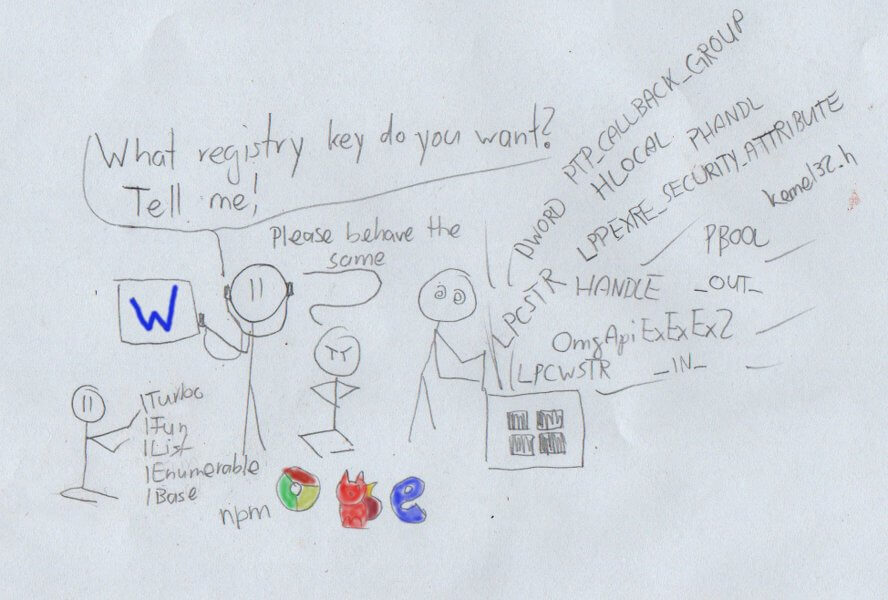 What registry key do you want?
Tell me!
Please behave the
same
W
ITurbo
IFun
IList
IEnumerable
IBase
npm
e
DWORD PTP_CALLBACK_GROUP
HLOCAL PHANDL
LPPEXRE_SECURITY_ATTRIBUTE
kernel32.h
LPCSTR HANDLE PBOOL
_OUT_
OmgApiExExEx2
LPCWSTR _IN_